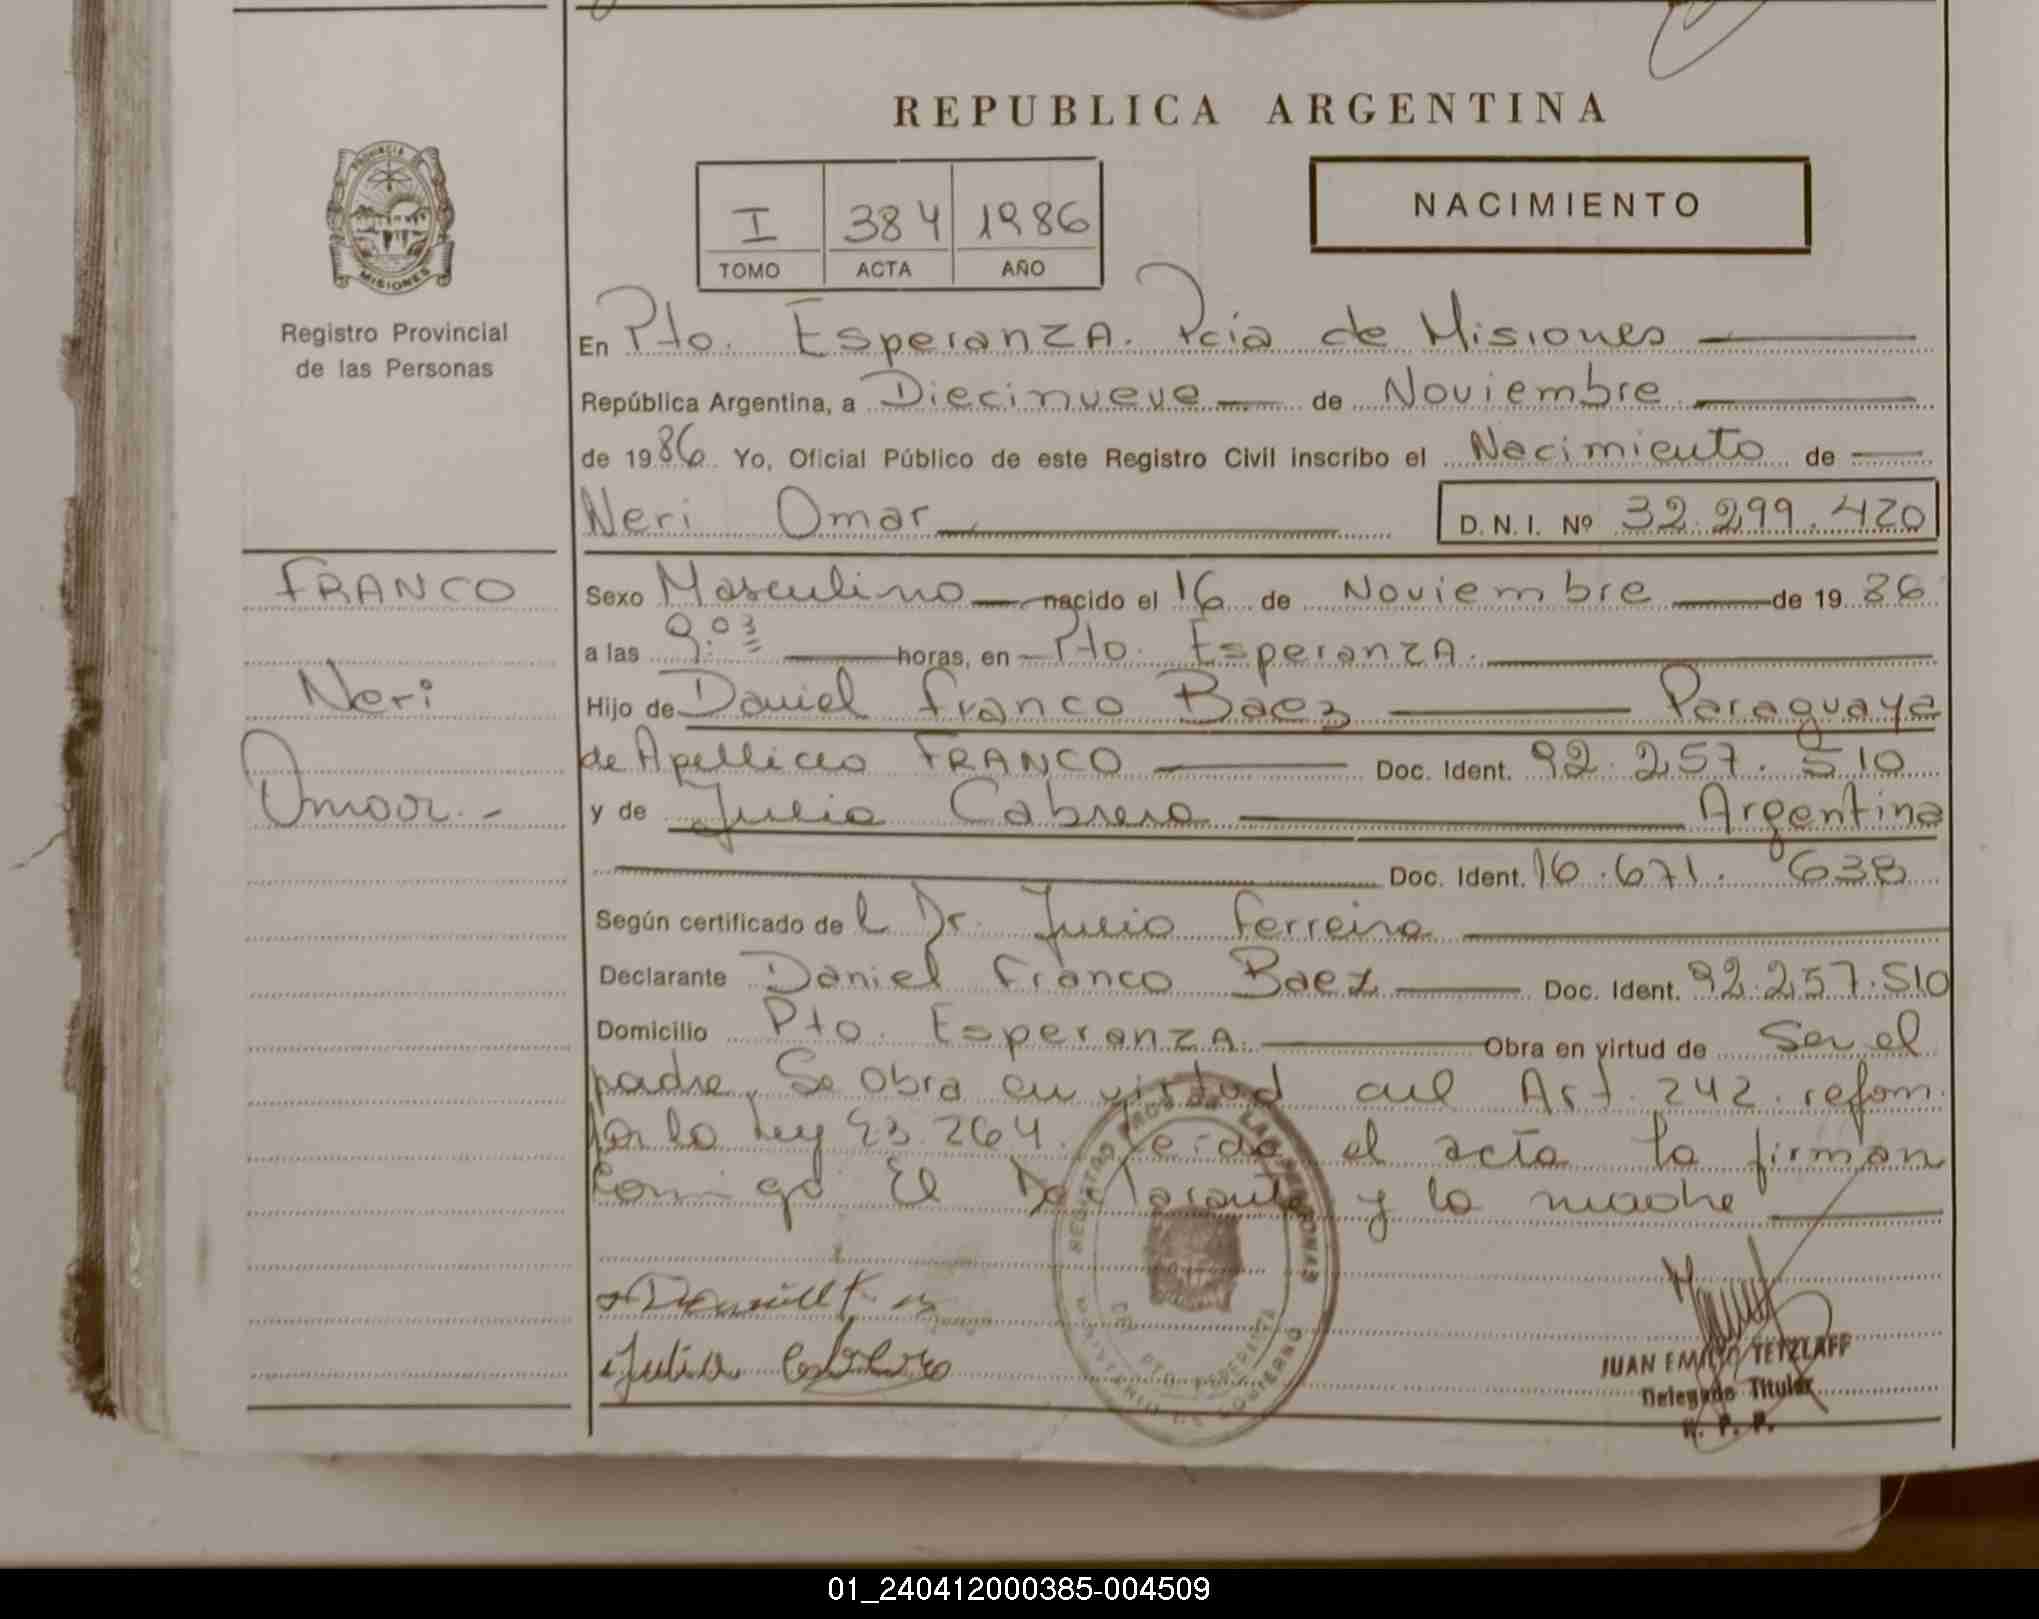 REPUBLICA ARGENTINA
PROVINCIA
MISIONES
Registro Provincial
de las Personas
I 384 1986
TOMO ACTA AÑO
NACIMIENTO
En Pto. Esperanza. Pcia de Misiones
República Argentina, a Diecinueve de Noviembre
de 1986 Yo, Oficial Público de este Registro Civil inscribo el Nacimiento de
Neri Omar D.N.I. Nº 32.299.420
FRANCO
Neri
Omar.-
Sexo Masculino nacido el 16 de Noviembre de 1986
a las 9:03 horas, en Pto. Esperanza.
Hijo de Daniel Franco Baez Paraguaya
de Apellido FRANCO Doc. Ident. 92.257.510
y de Julia Cabrera Argentina
Doc. Ident. 16.671.638
Según certificado del Dr. Julio Ferreira
Declarante Daniel Franco Baez Doc. Ident. 92.257.510
Domicilio Pto. Esperanza Obra en virtud de Ser el
padre. Se Obra en virtud del Art. 242. reform.
por la Ley 23.264. Leida el acta la firman
Conmigo El Declarante y la madre
REGISTRO PROV. DE LAS PERSONAS
MINISTERIO DE GOBIERNO
Julia Cabrera
JUAN EMILIO TETZLAFF
Delegado Titular
R. P. P.
01_240412000385-004509